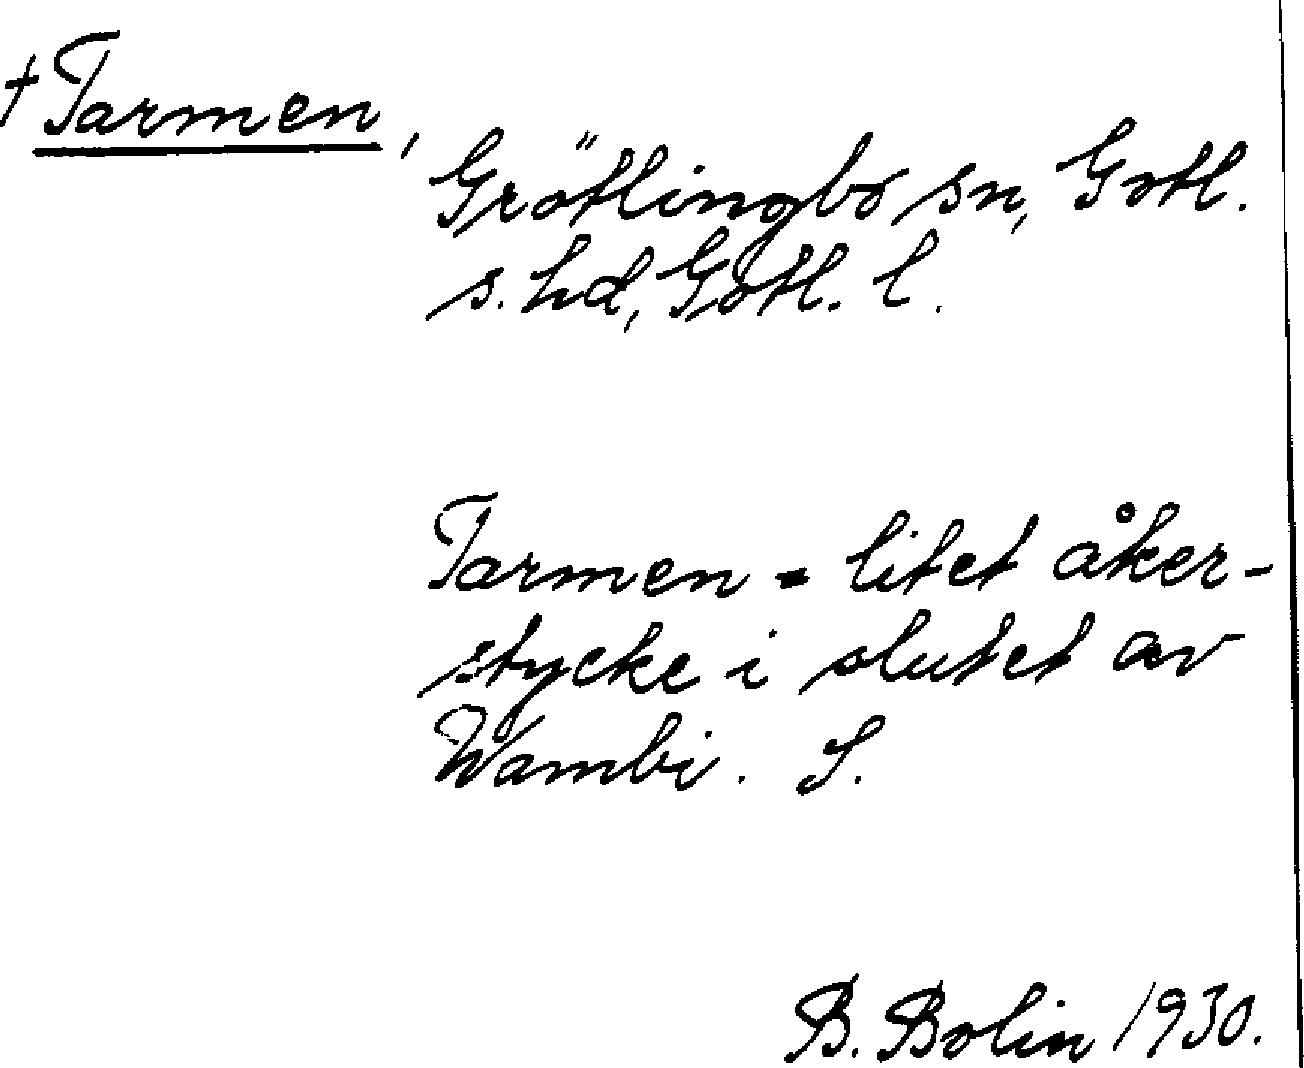 † Tarmen,
Grötlingbo sn, Gotl.
s. hd, Gotl. l.
Tarmen = litet åker-
stycke i slutet av
Wambi. S.
B. Bolin 1930.